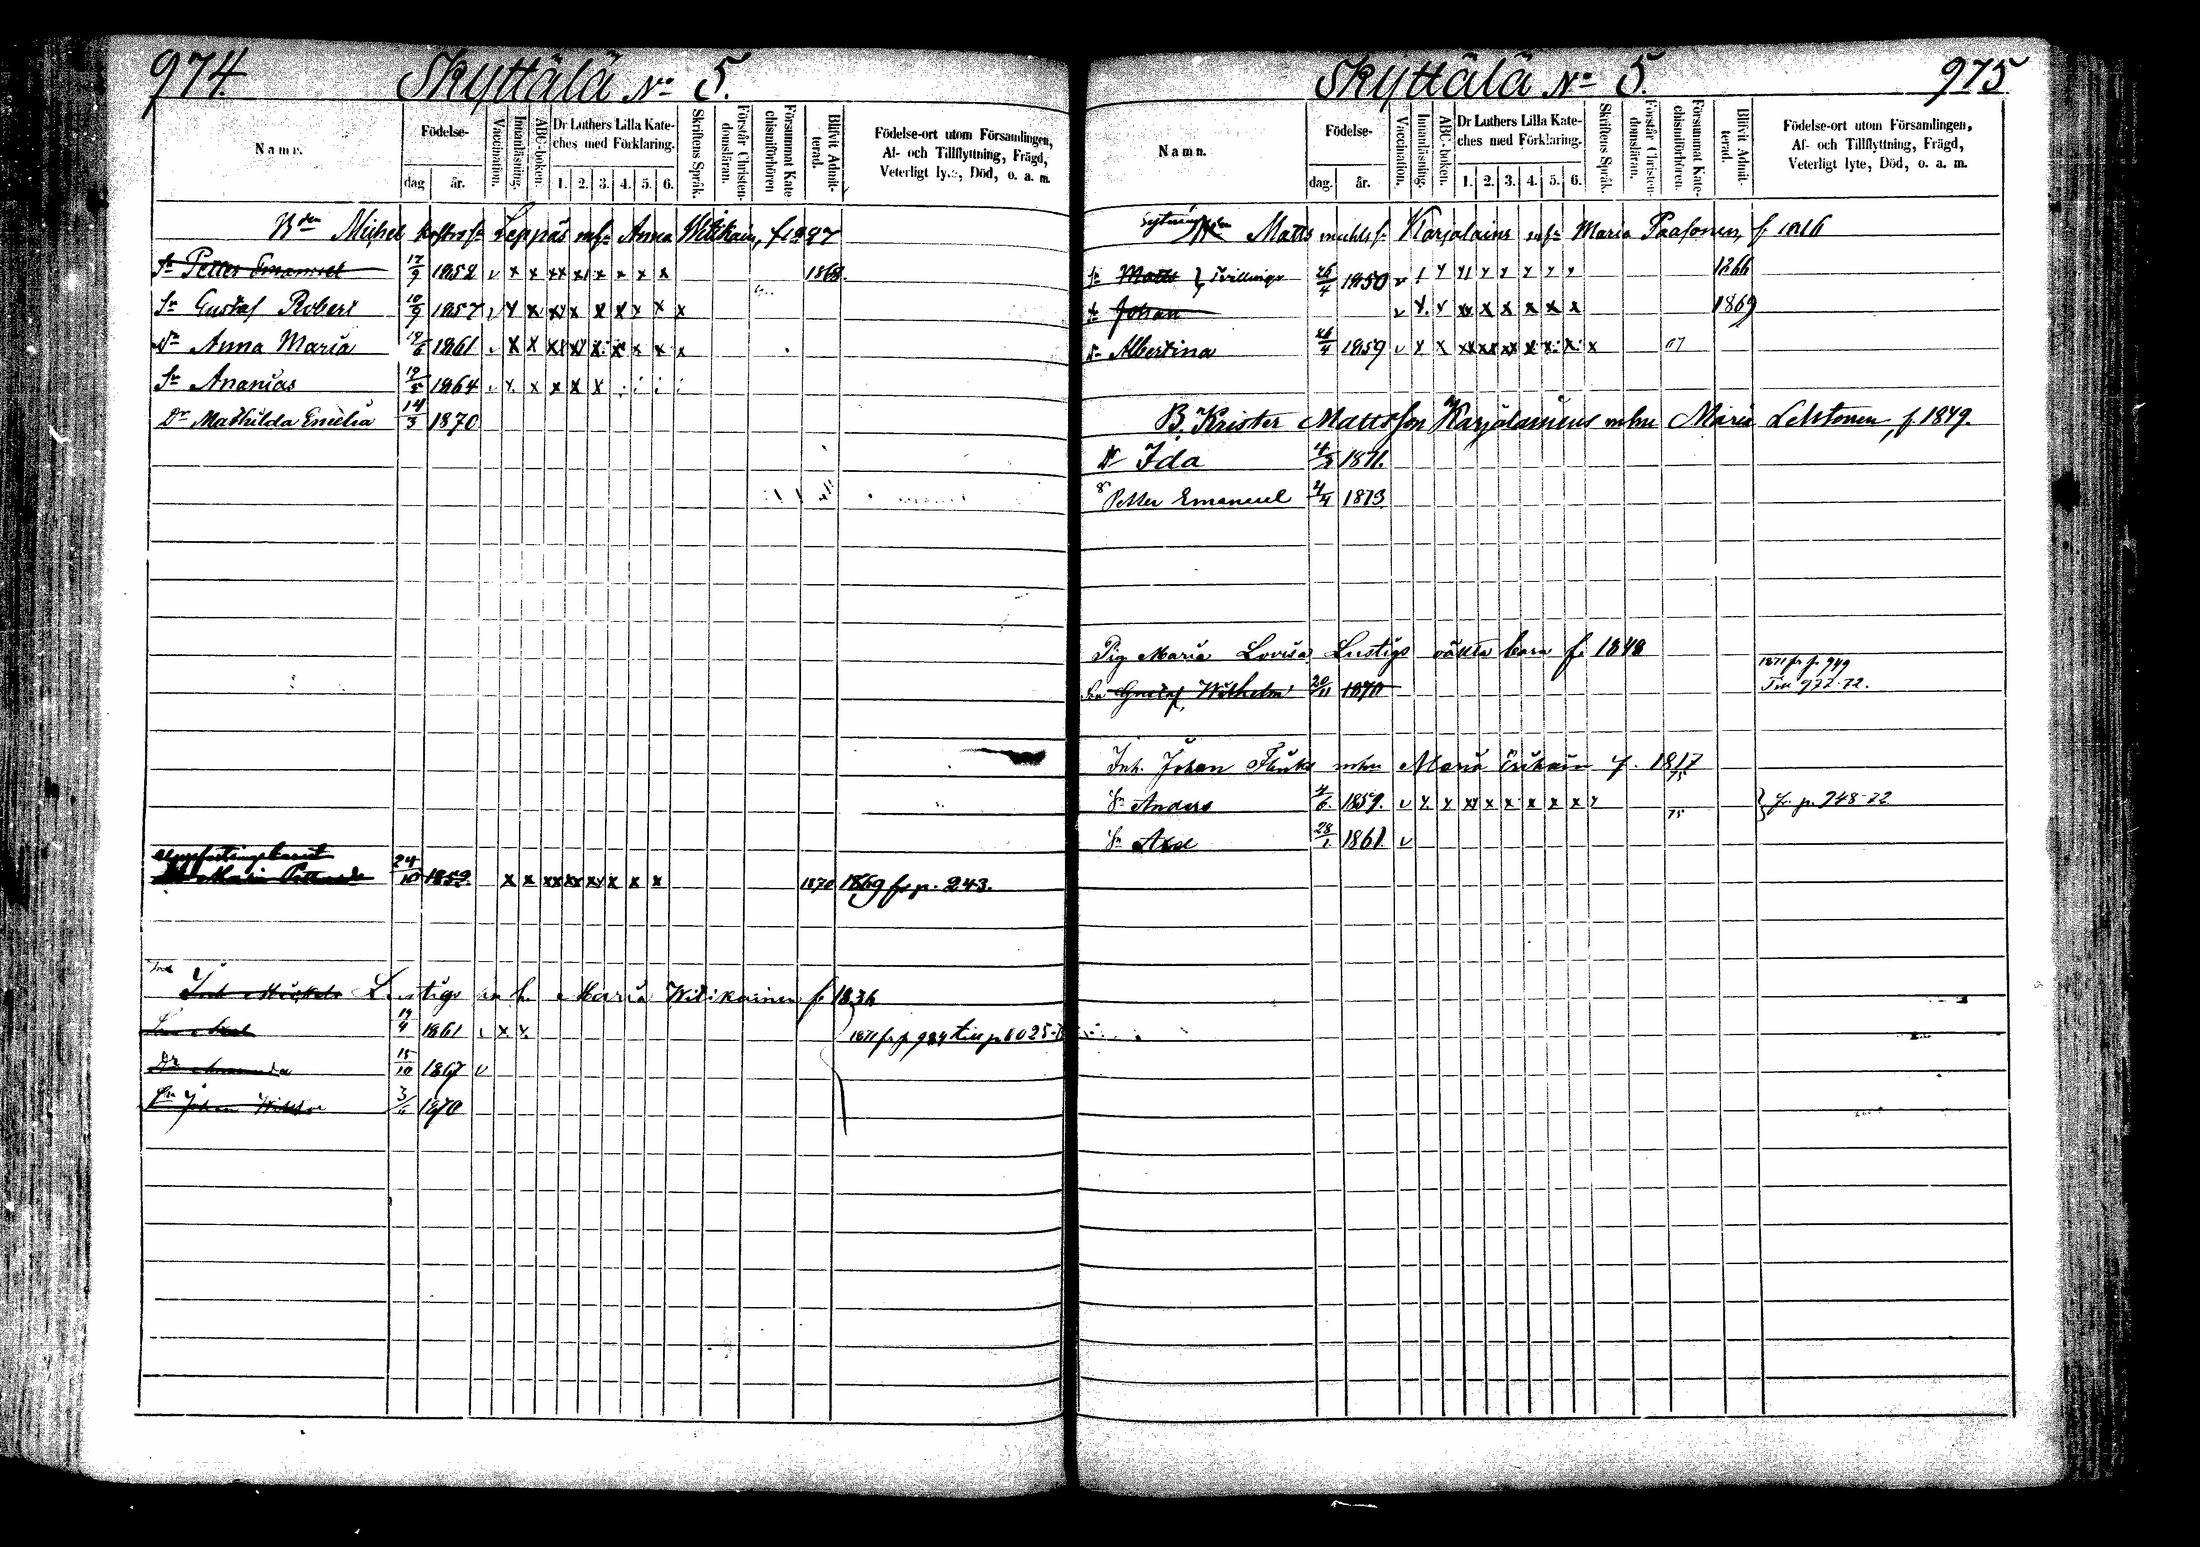 974 Skyttälä No 5.
Namn.
Födelse-
dag år.
Vaccination.
Innanläsning.
ABC-boken.
Dr Luthers Lilla Kate-
ches med Förklaring.
1. 2. 3. 4. 5. 6.
Skriftens Språk.
Förstår Christen-
domsläran.
Försummat Kate
chismiförhören
Blifvit Admit-
terad.
Födelse-ort utom Församlingen,
Af- och Tillflyttning, Frägd,
Veterligt lyte, Död, o. a. m.
Bden Michel Leppäs mhu Anna f 1827
Sn Petter Emanuel 17/9 1852 v x x xx x x x x x 1868
Sn Gustaf Robert 10/9 1857 v x x xx x x x x x x
Dr Anna Maria 1861 v x x xx xx x x x x x
Sn Ananias 19/5 1864 v x x x x x
Dr Mathilda Emelia 14/3 1870
Maria 24/10 1852 x x xx xx xx x x x 1870 1869 fr p. 243.
Inh Lustigs Maria Witikainen f. 1836
Son 19/4 1861 v x x 1871 fr p 984 till p 1025
Dr Amanda 15/10 1867 v
Sn Johan 1870
Skyttälä No 5. 975
Namn.
Födelse-
dag. år.
Vaccination.
Innanläsning.
ABC-boken.
Dr Luthers Lilla Kate-
ches med Förklaring.
1. 2. 3. 4. 5. 6.
Skriftens Språk.
Förstår Christen-
domsläran.
Försummat Kate-
chismiförhören.
Blifvit Admit-
terad.
Födelse-ort utom Församlingen,
Af- och Tillflyttning, Frägd,
Veterligt lyte, Död, o. a. m.
Matts Karjalains mhu Maria Paasonen, f 1816
Sn Matts } Tvillingar 26/4 1850 v 1866
Sn Johan v x x xx x x x x x 1869
Dr Albertina 26/4 1859 v x x xx xx xx x x x x
B. Krister Mattsson Karjalainens mhu Maria Lehtonen, f. 1849.
Dr Ida 1871.
Sn Petter Emanuel 4/4 1873
Pig Maria Lovisa Lustigs oäkta barn f. 1848
1871 fr p. 949
Son Gustaf Wilhelm 20/11 1870 Till 977-72.
Inh. Johan mhu Maria f. 1817
Sn Anders 4/6 1859. v x x xx x x x x x x 75 } fr. p. 948-72.
Sn 28/1 1861 v